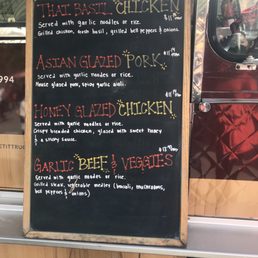 THAI BASIL CHICKEN
Served with garlic noodles or rice.
Grilled chicken, fresh basil, grilled bell peppers & onions.
ASIAN GLAZED PORK
Served with garlic noodles or rice.
House glazed pork, spicy garlic aioli.
HONEY GLAZED CHICKEN
Served with garlic noodles or rice.
Crispy breaded chicken, glazed with sweet honey
& a spicy sauce.
GARLIC BEEF & VEGGIES
Served with garlic noodles or rice.
Grilled steak, vegetable medley (broccoli, mushrooms,
bell peppers & onions)
994